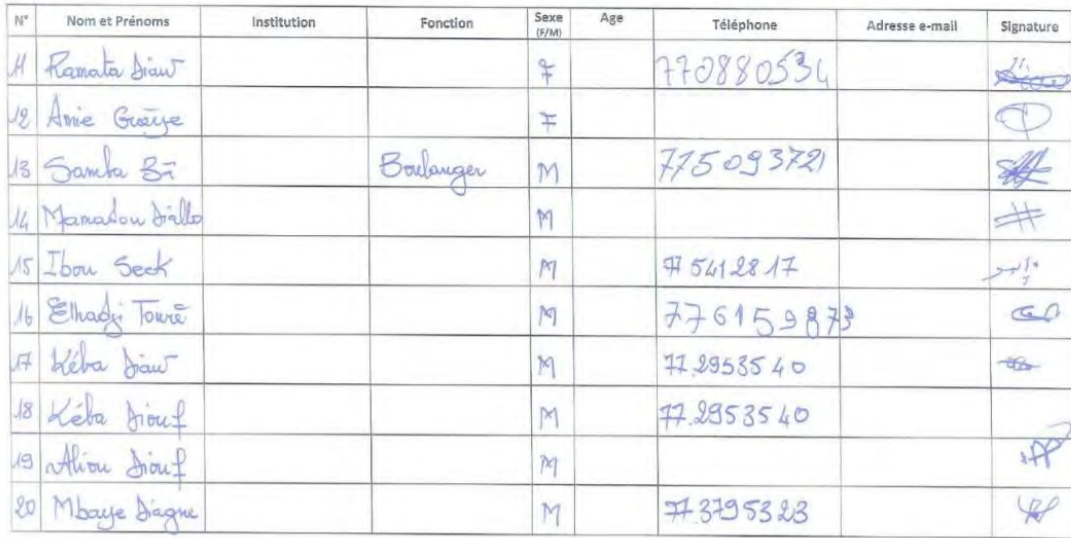 N° Nom et Prénoms Institution Fonction Sexe (F/M) Age Téléphone Adresse e-mail Signature
11 Ramata Diaw F 770880534
12 Amie Guèye F
13 Samba Bâ Boulanger M 775093721
14 Mamadou Diallo M
15 Ibou Seck M 77 5412817
16 Elhadji Touré M 776159873
17 Kéba Diaw M 77.2953540
18 Kéba Diouf M 77.2953540
19 Aliou Diouf M
20 Mbaye Diagne M 77.3795323